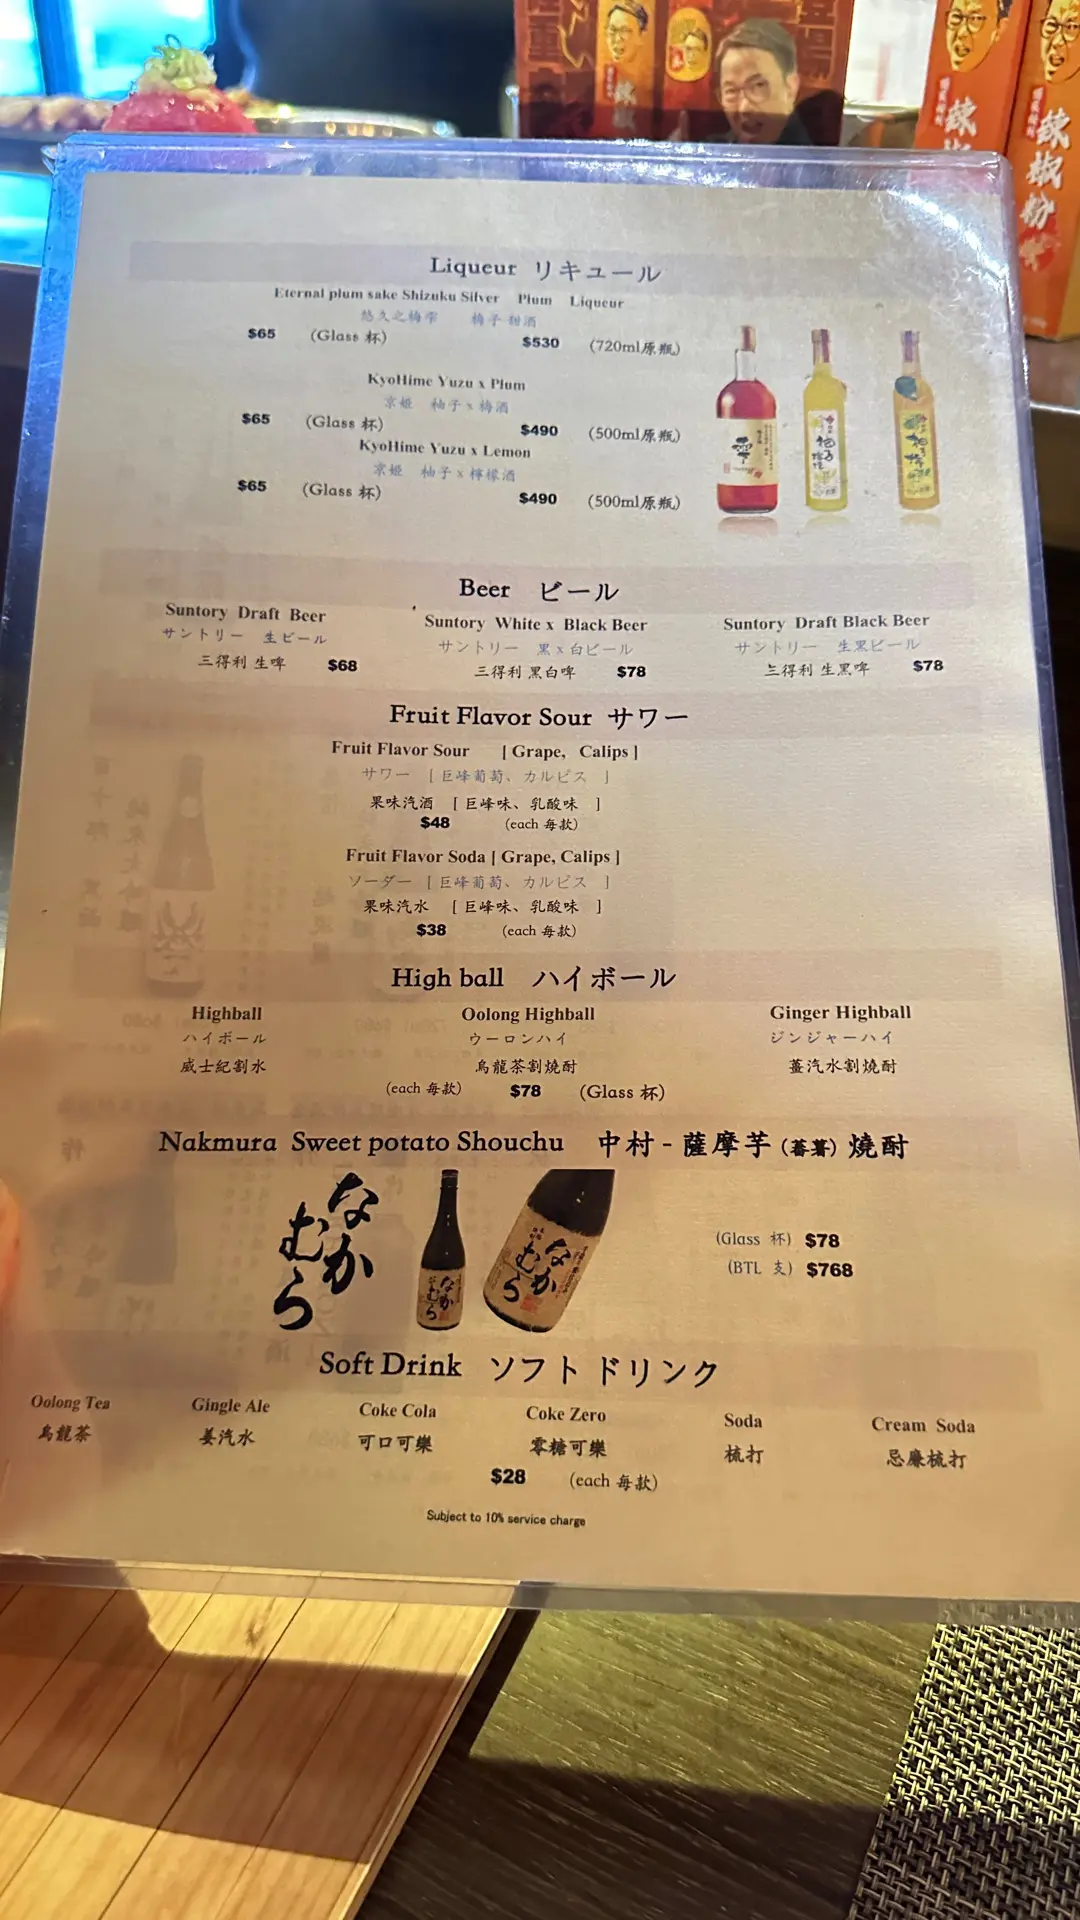 辣椒
辣椒粉
Liqueur リキュール
Eternal plum sake Shizuku Silver Plum Liqueur
悠久之梅雫 梅子甜酒
$65 (Glass 杯) $530 (720ml原瓶)
KyoHime Yuzu x Plum
京姫 柚子x梅酒
$65 (Glass 杯) $490 (500ml原瓶)
KyoHime Yuzu x Lemon
京姫 柚子x檸檬酒
$65 (Glass 杯) $490 (500ml原瓶)
Beer ビール
Suntory Draft Beer Suntory White x Black Beer Suntory Draft Black Beer
サントリー 生ビール サントリー 黒x白ビール サントリー 生黒ビール
三得利 生啤 $68 三得利 黑白啤 $78 三得利 生黑啤 $78
Fruit Flavor Sour サワー
Fruit Flavor Sour [ Grape, Calips ]
サワー [ 巨峰葡萄、カルピス ]
果味汽酒 [ 巨峰味、乳酸味 ]
$48 (each 每款)
Fruit Flavor Soda [ Grape, Calips ]
ソーダー [ 巨峰葡萄、カルピス ]
果味汽水 [ 巨峰味、乳酸味 ]
$38 (each 每款)
High ball ハイボール
Highball Oolong Highball Ginger Highball
ハイボール ウーロンハイ ジンジャーハイ
威士紀割水 烏龍茶割燒酎 薑汽水割燒酎
(each 每款) $78 (Glass 杯)
Nakmura Sweet potato Shouchu 中村 - 薩摩芋 (蕃薯) 燒酎
なかむら
なかむら
なかむら
(Glass 杯) $78
(BTL 支) $768
Soft Drink ソフトドリンク
Oolong Tea Gingle Ale Coke Cola Coke Zero Soda Cream Soda
烏龍茶 姜汽水 可口可樂 零糖可樂 梳打 忌廉梳打
$28 (each 每款)
Subject to 10% service charge